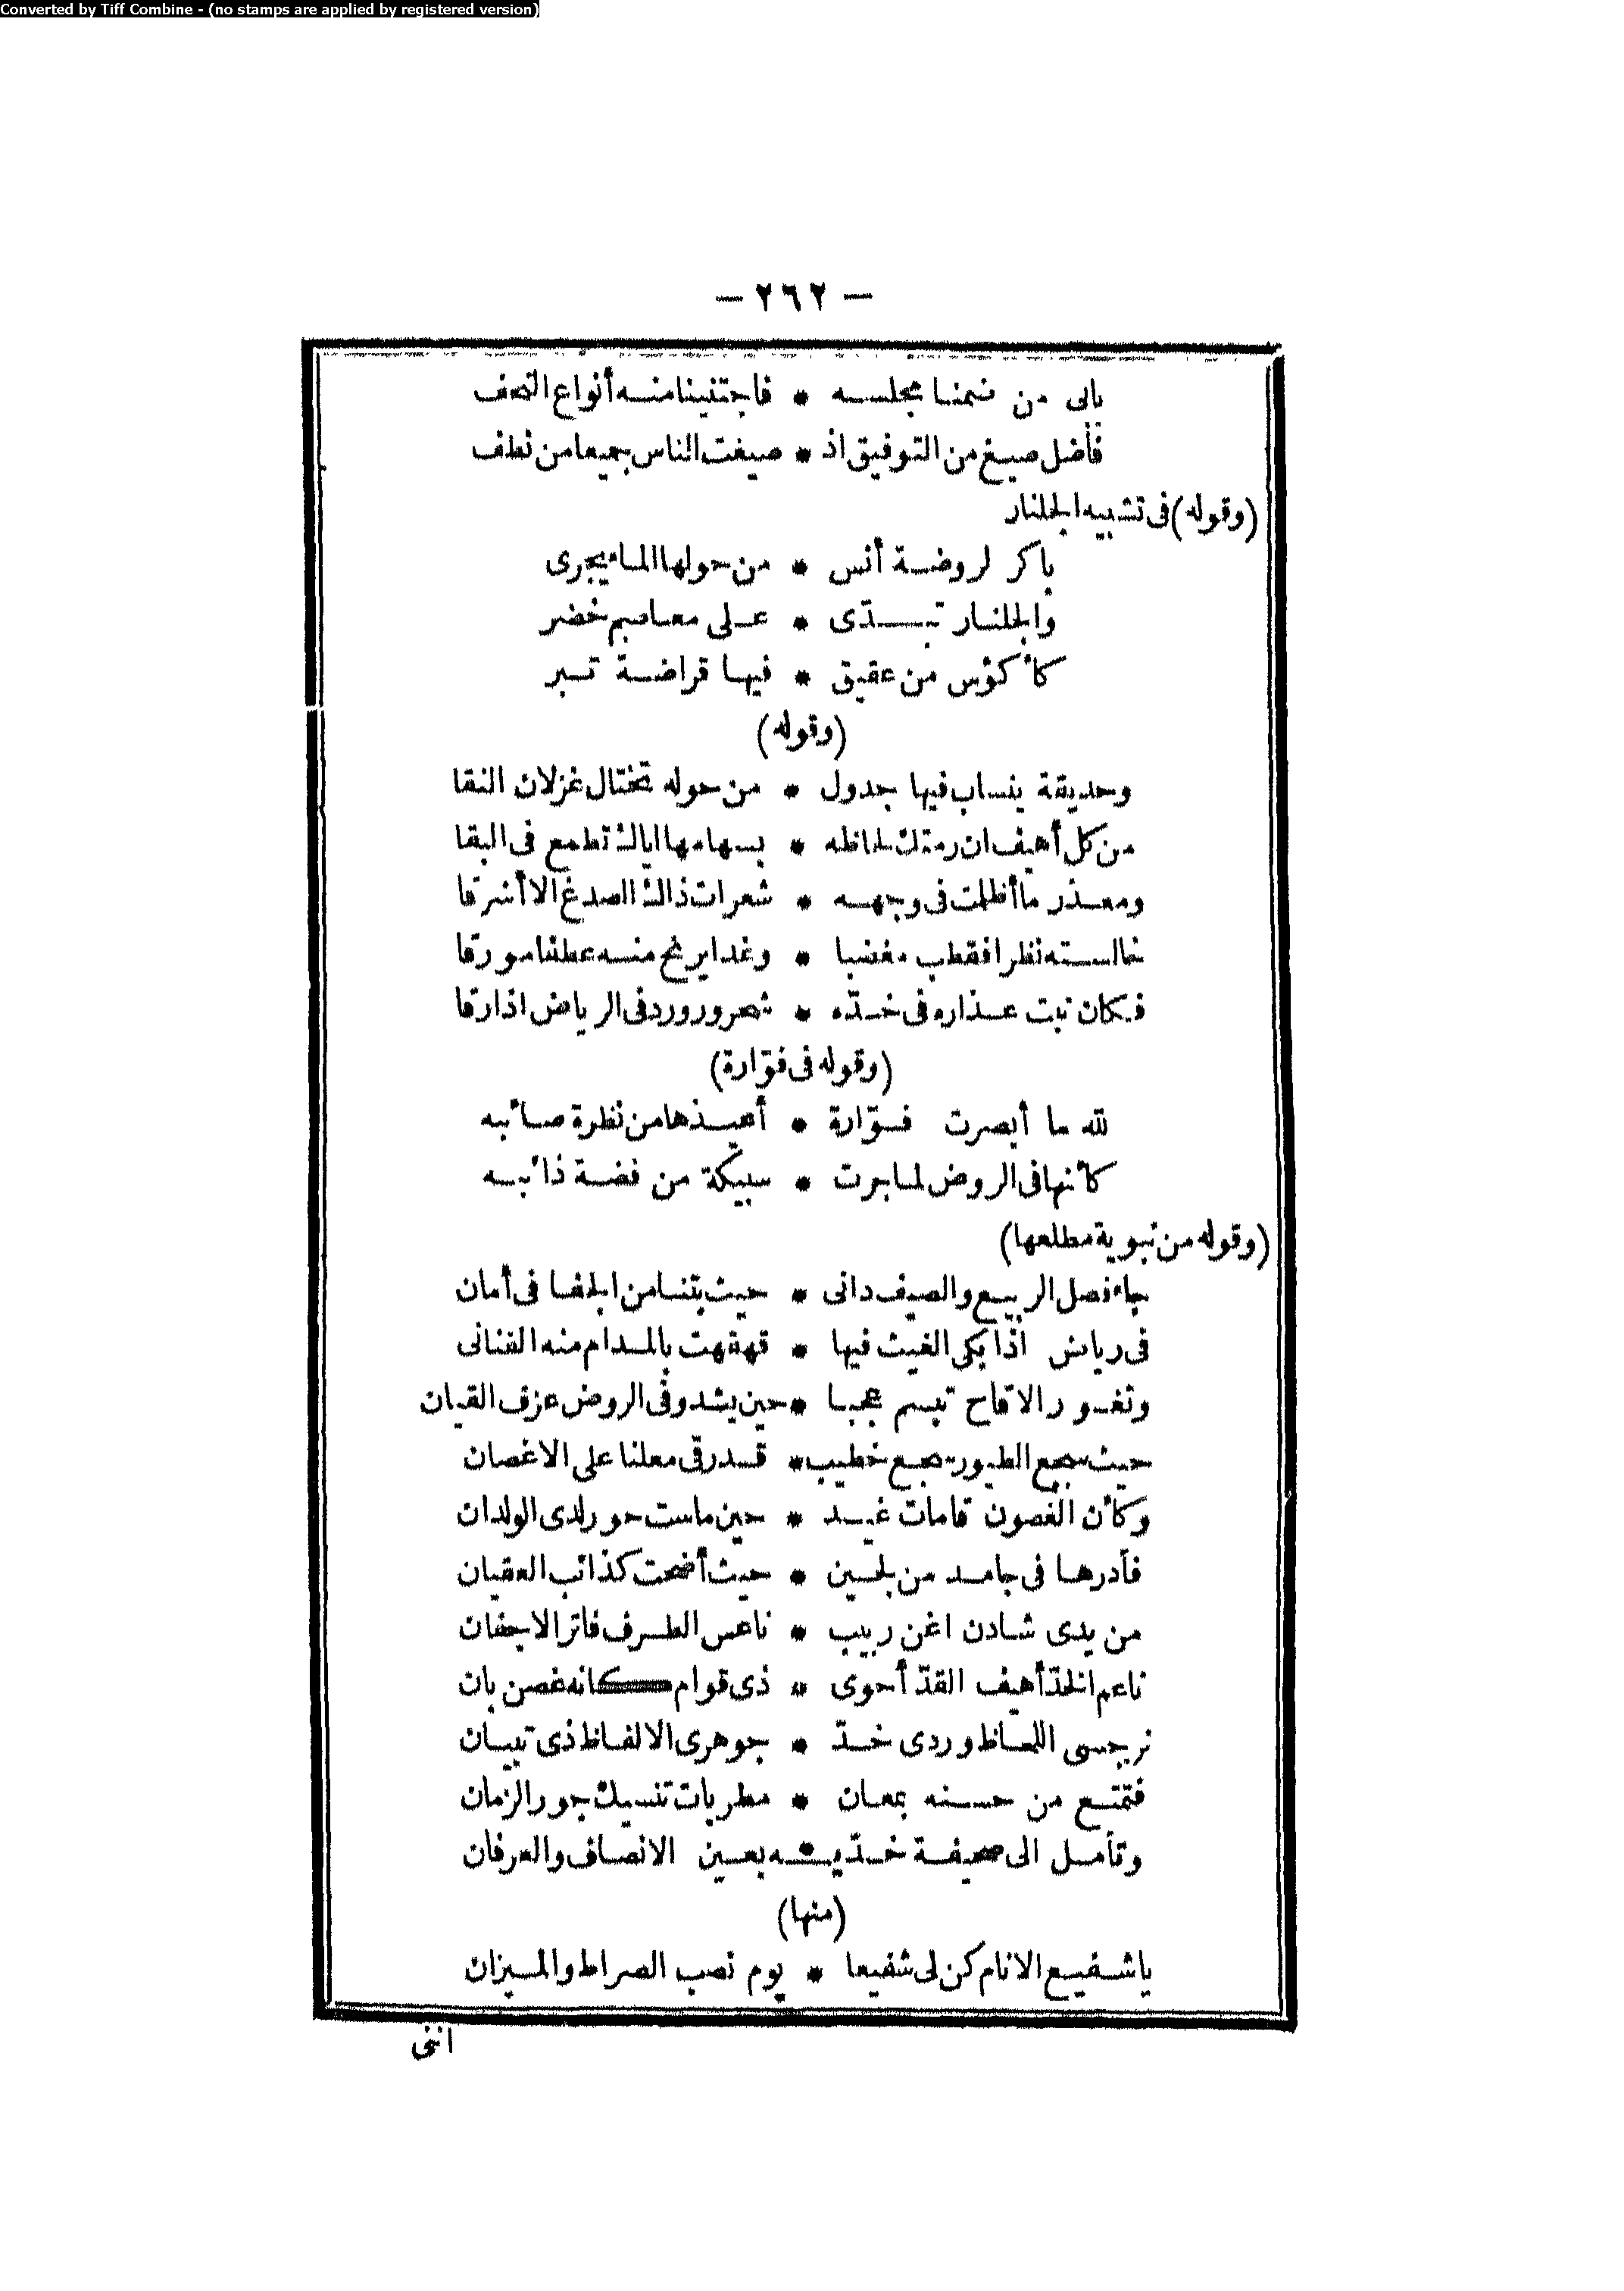 Converted by Tiff Combine - (no stamps are applied by registered version)
— ٢٦٢ —
بابى من ضمنا مجلسه * فاجتنينا منه أنواع التحف
فاضل صيغ من التوفيق اذ * صيغت الناس جميعا من نطف
(وقوله) فى تشبيه الجلنار
باكر لروضة أنس * من حولها الماء يجرى
والجلنار تبدّى * على معاصم خضر
كأكؤس من عقيق * فيها قراضة تبر
(وقوله)
وحديقة ينساب فيها جدول * من حوله تختال غزلان النقا
من كل أهيف ان رمتك لحاظه * بسهامها اياك تطمع فى البقا
ومعذر ما أظلمت فى وجهه * شعرات ذاك الصدغ الا أشرقا
خالسته نظرا فقطب مغضبا * وغدا يرنح منه عطفا مورقا
فكان نبت عذاره فى خدّه * شحرور ورد فى الرياض اذا رقا
(وقوله فى فوّارة)
لله ما أبصرت فوّارة * أعيذها من نظرة صائبه
كأنها فى الروض لما جرت * سبيكة من فضة ذائبه
(وقوله من نبوية مطلعها)
جاء فصل الربيع والصيف دانى * حيث بتنا من الجفا فى أمان
فى رياض اذا بكى الغيث فيها * قهقهت بالمدام منه القنانى
وثغور الاقاح تبسم عجبا * حين يشدو فى الروض عزف القيان
حيث سجع الطيور سجع خطيب * قد رقى معلنا على الاغصان
وكأن الغصون قامات غيد * حين ماست حور لدى الولدان
فأدرها فى جامد من لجين * حيث أضحت كذائب العقيان
من يدى شادن اغن ربيب * ناعس الطرف فاتر الاجفان
ناعم الخدّ أهيف القدّ أحوى * ذى قوام كانه غصن بان
نرجسى اللحاظ وردى خدّ * جوهرى الالفاظ ذى تبيان
فتمتع من حسنه بمعان * مطربات تنسيك جور الزمان
وتأمل الى صحيفة خدّيه * بعين الانصاف والعرفان
(منها)
يا شفيع الانام كن لى شفيعا * يوم نصب الصراط والميزان
اننى